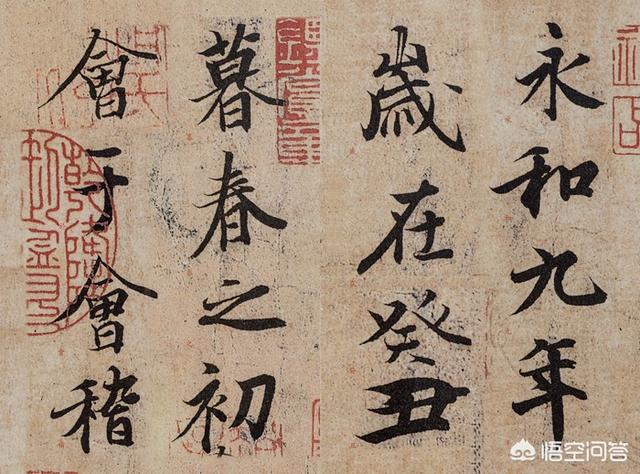 永和九年
歲在癸丑
暮春之初
會于會稽
悟空问答